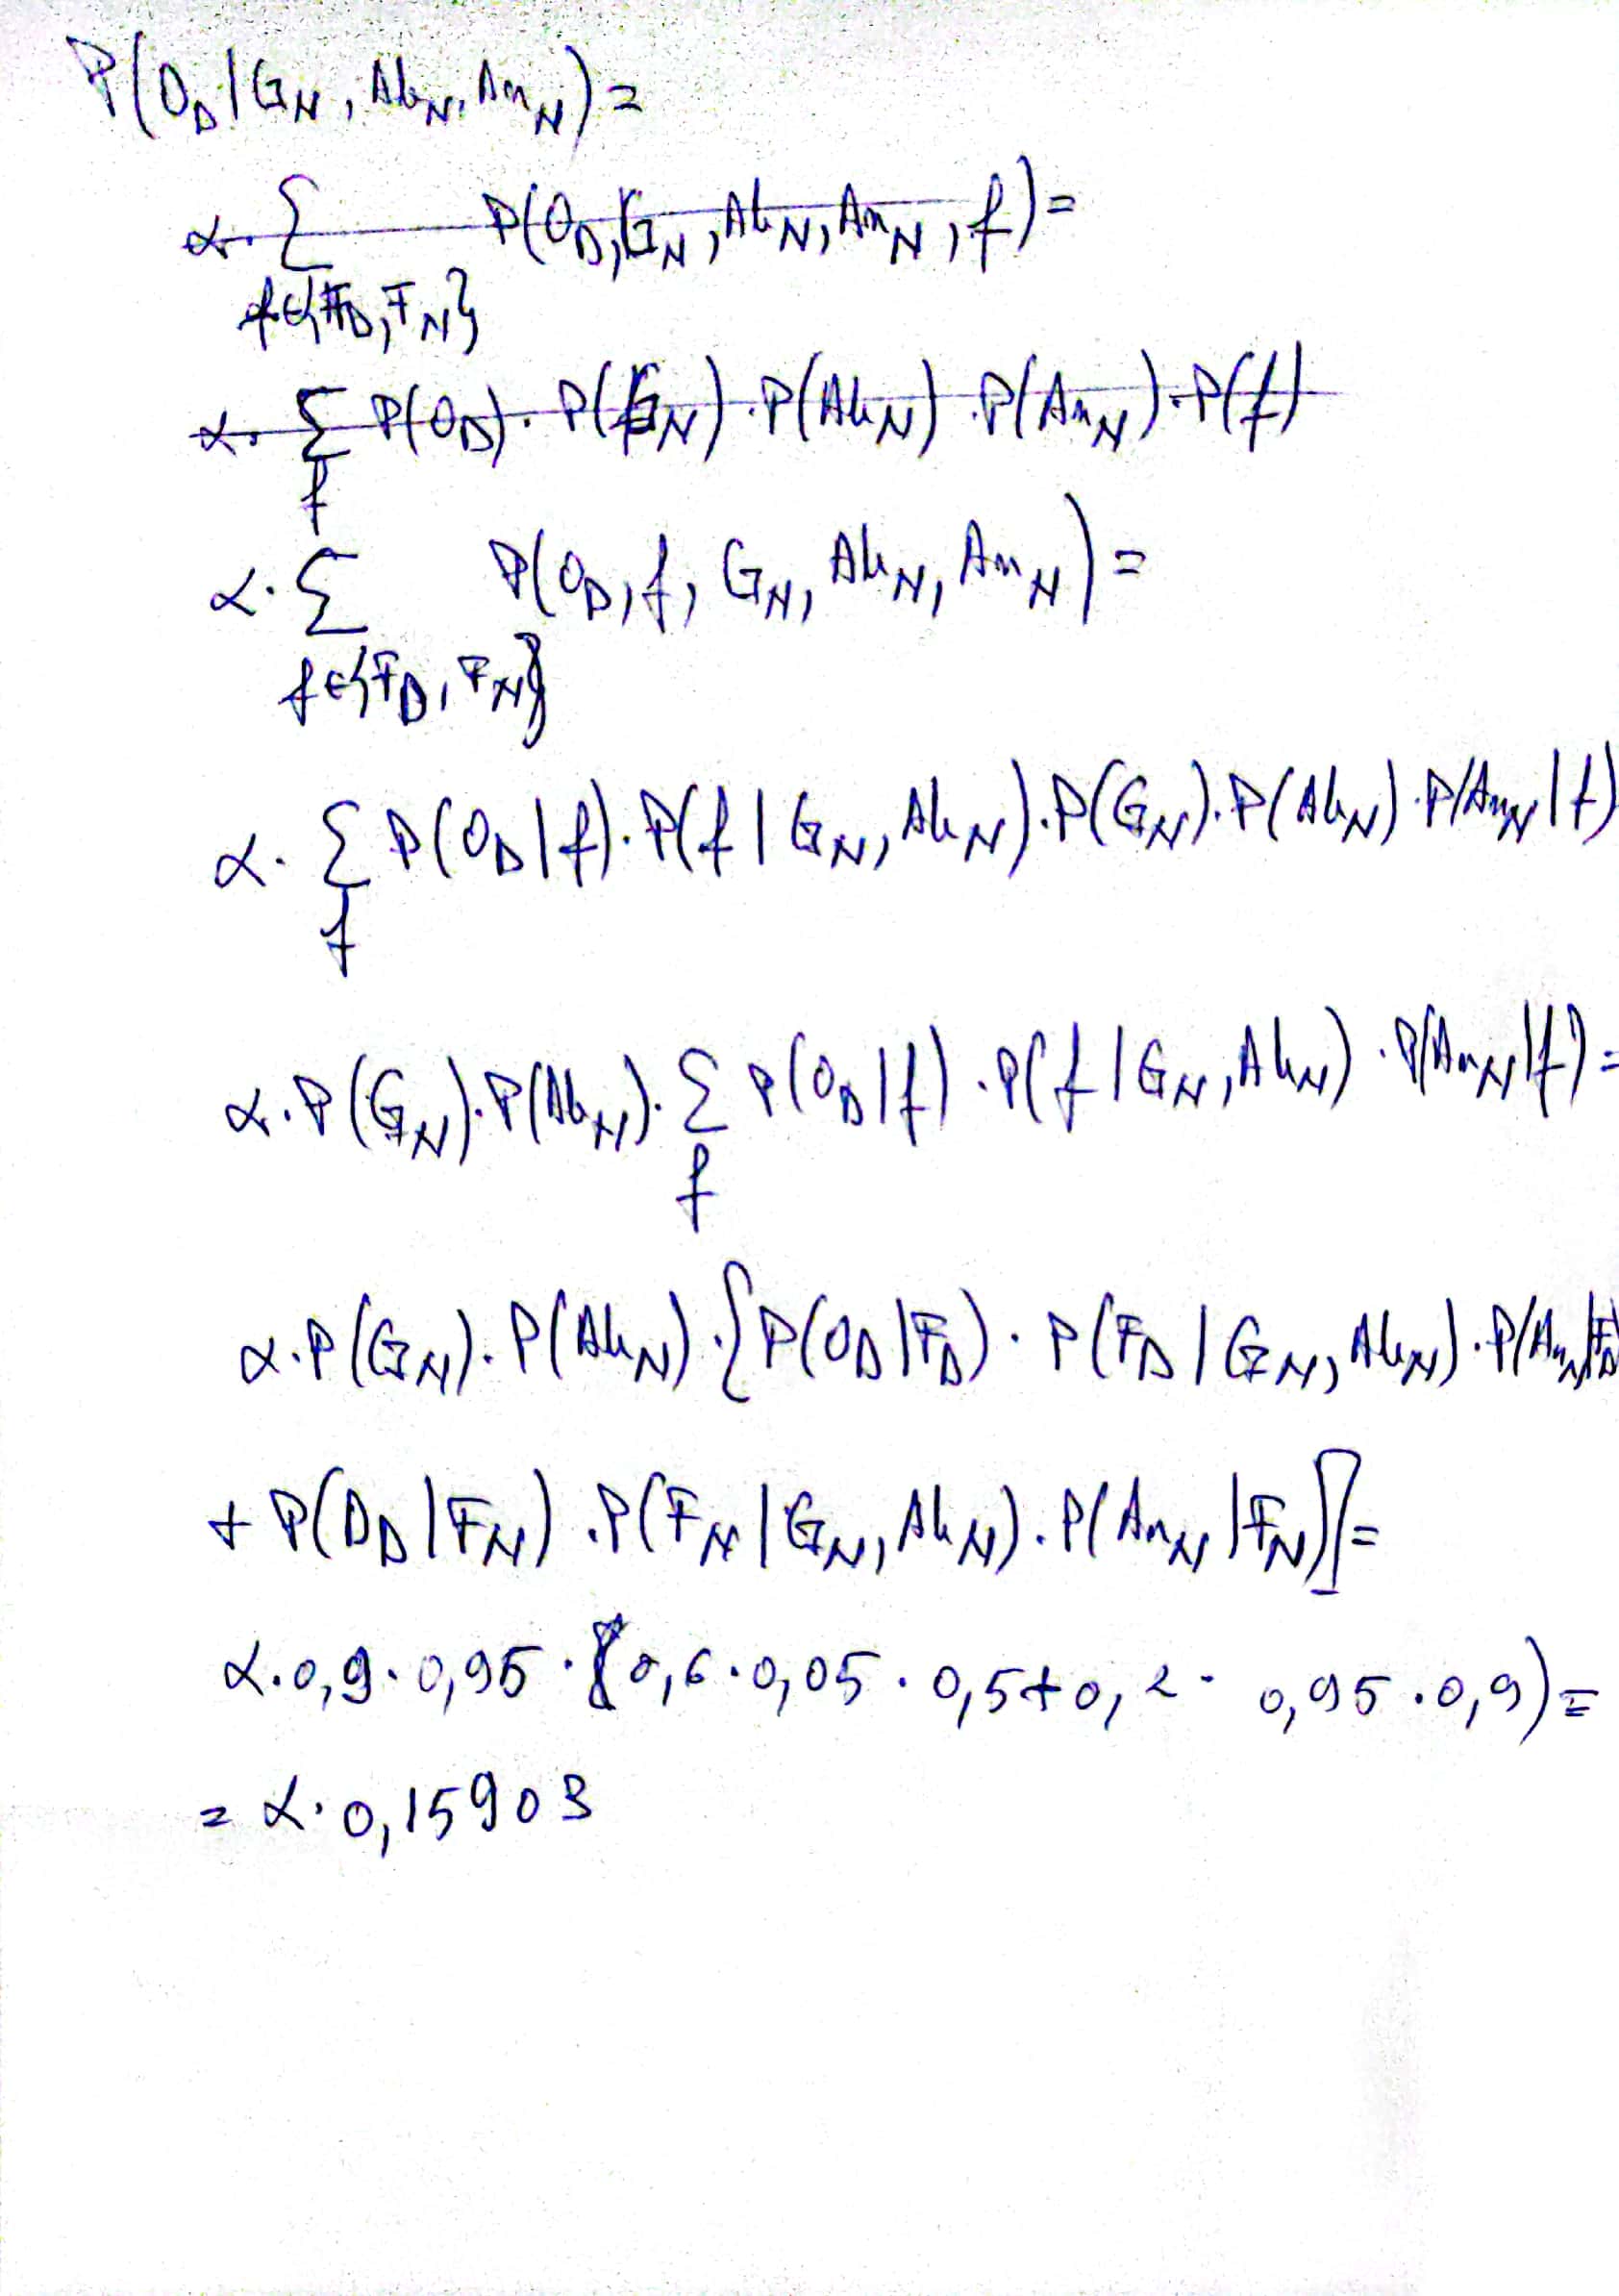 P(O_D | G_N, Ah_N, Am_N) =
α · Σ P(O_D, G_N, Ah_N, Am_N, f) =
f ∈ {F_D, F_N}
α · Σ P(O_D) · P(G_N) · P(Ah_N) · P(Am_N) · P(f)
f
α · Σ P(O_D, f, G_N, Ah_N, Am_N) =
f ∈ {F_D, F_N}
α · Σ P(O_D | f) · P(f | G_N, Ah_N) · P(G_N) · P(Ah_N) · P(Am_N | f)
f
α · P(G_N) · P(Ah_N) · Σ P(O_D | f) · P(f | G_N, Ah_N) · P(Am_N | f) =
f
α · P(G_N) · P(Ah_N) · [P(O_D | F_D) · P(F_D | G_N, Ah_N) · P(Am_N | F_D
+ P(D_D | F_N) · P(F_N | G_N, Ah_N) · P(Am_N | F_N)] =
α · 0,9 · 0,95 · (0,6 · 0,05 · 0,5 + 0,2 · 0,95 · 0,9) =
= α · 0,15903